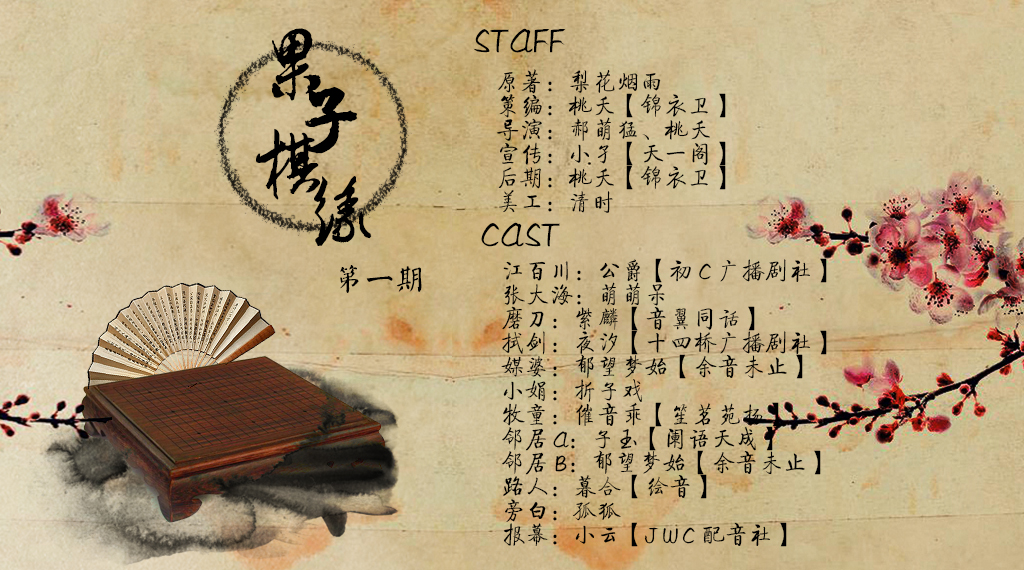 果子棋缘
第一期
STAFF
原著：梨花烟雨
策编：桃夭【锦衣卫】
导演：郝萌猛、桃夭
宣传：小孑【天一阁】
后期：桃夭【锦衣卫】
美工：清时
CAST
江百川：公爵【初C广播剧社】
张大海：萌萌呆
磨刀：紫麟【音翼同话】
拭剑：夜汐【十四桥广播剧社】
媒婆：郁望梦始【余音未止】
小娟：折子戏
牧童：催音乘【笙茗苑扬】
邻居A：子玉【阑语天成】
邻居B：郁望梦始【余音未止】
路人：暮合【绘音】
旁白：孤狐
报幕：小云【JWC配音社】